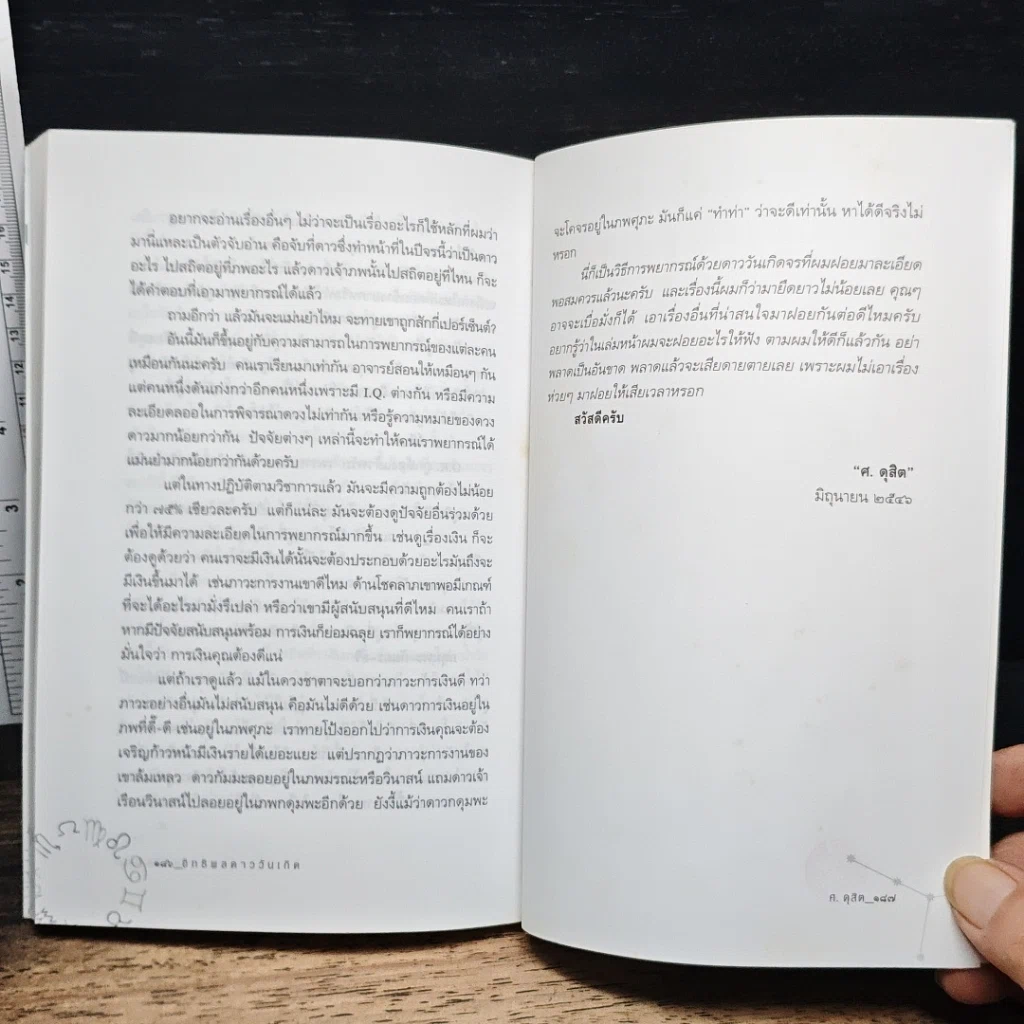 อยากจะอ่านเรื่องอื่นๆ ไม่ว่าจะเป็นเรื่องอะไรก็ใช้หลักที่ผมว่า
มานี่แหละเป็นตัวจับอ่าน คือจับที่ดาวซึ่งทำหน้าที่ในปีจรนี้ว่าเป็นดาว
อะไร ไปสถิตอยู่ที่ภพอะไร แล้วดาวเจ้าภพนั้นไปสถิตอยู่ที่ไหน ก็จะ
ได้คำตอบที่เอามาพยากรณ์ได้แล้ว
ถามอีกว่า แล้วมันจะแม่นยำไหม จะทายเขาถูกสักกี่เปอร์เซ็นต์?
อันนี้มันก็ขึ้นอยู่กับความสามารถในการพยากรณ์ของแต่ละคน
เหมือนกันนะครับ คนเราเรียนมาเท่ากัน อาจารย์สอนให้เหมือนๆ กัน
แต่คนหนึ่งดันเก่งกว่าอีกคนหนึ่งเพราะมี I.Q. ต่างกัน หรือมีความ
ละเอียดลออในการพิจารณาดวงไม่เท่ากัน หรือรู้ความหมายของดวง
ดาวมากน้อยกว่ากัน ปัจจัยต่างๆ เหล่านี้จะทำให้คนเราพยากรณ์ได้
แม่นยำมากน้อยกว่ากันด้วยครับ
แต่ในทางปฏิบัติตามวิชาการแล้ว มันจะมีความถูกต้องไม่น้อย
กว่า ๗๕% เชียวละครับ แต่ก็แน่ละ มันจะต้องดูปัจจัยอื่นร่วมด้วย
เพื่อให้มีความละเอียดในการพยากรณ์มากขึ้น เช่นดูเรื่องเงิน ก็จะ
ต้องดูด้วยว่า คนเราจะมีเงินได้นั้นจะต้องประกอบด้วยอะไรมันถึงจะ
มีเงินขึ้นมาได้ เช่นภาวะการงานเขาดีไหม ด้านโชคลาภเขาพอมีเกณฑ์
ที่จะได้อะไรมามั่งรึเปล่า หรือว่าเขามีผู้สนับสนุนที่ดีไหม คนเราถ้า
หากมีปัจจัยสนับสนุนพร้อม การเงินก็ย่อมฉลุย เราก็พยากรณ์ได้อย่าง
มั่นใจว่า การเงินคุณต้องดีแน่
แต่ถ้าเราดูแล้ว แม้ในดวงชาตาจะบอกว่าภาวะการเงินดี ทว่า
ภาวะอย่างอื่นมันไม่สนับสนุน คือมันไม่ดีด้วย เช่นดาวการเงินอยู่ใน
ภพที่ดี๊-ดี เช่นอยู่ในภพศุภะ เราทายโป้งออกไปว่าการเงินคุณจะต้อง
เจริญก้าวหน้ามีเงินรายได้เยอะแยะ แต่ปรากฏว่าภาวะการงานของ
เขาล้มเหลว ดาวกัมมะลอยอยู่ในภพมรณะหรือวินาสน์ แถมดาวเจ้า
เรือนวินาสน์ไปลอยอยู่ในภพกดุมพะอีกด้วย ยังงี้แม้ว่าดาวกดุมพะ
๑๘๖_อิทธิพลดาววันเกิด
จะโคจรอยู่ในภพศุภะ มันก็แค่ “ทำท่า” ว่าจะดีเท่านั้น หาได้ดีจริงไม่
หรอก
นี่ก็เป็นวิธีการพยากรณ์ด้วยดาววันเกิดจรที่ผมฝอยมาละเอียด
พอสมควรแล้วนะครับ และเรื่องนี้ผมก็ว่ามายืดยาวไม่น้อยเลย คุณๆ
อาจจะเบื่อมั่งก็ได้ เอาเรื่องอื่นที่น่าสนใจมาฝอยกันต่อดีไหมครับ
อยากรู้ว่าในเล่มหน้าผมจะฝอยอะไรให้ฟัง ตามผมให้ดีก็แล้วกัน อย่า
พลาดเป็นอันขาด พลาดแล้วจะเสียดายตายเลย เพราะผมไม่เอาเรื่อง
ห่วยๆ มาฝอยให้เสียเวลาหรอก
สวัสดีครับ
“ศ. ดุสิต”
มิถุนายน ๒๕๔๖
ศ. ดุสิต_๑๘๗